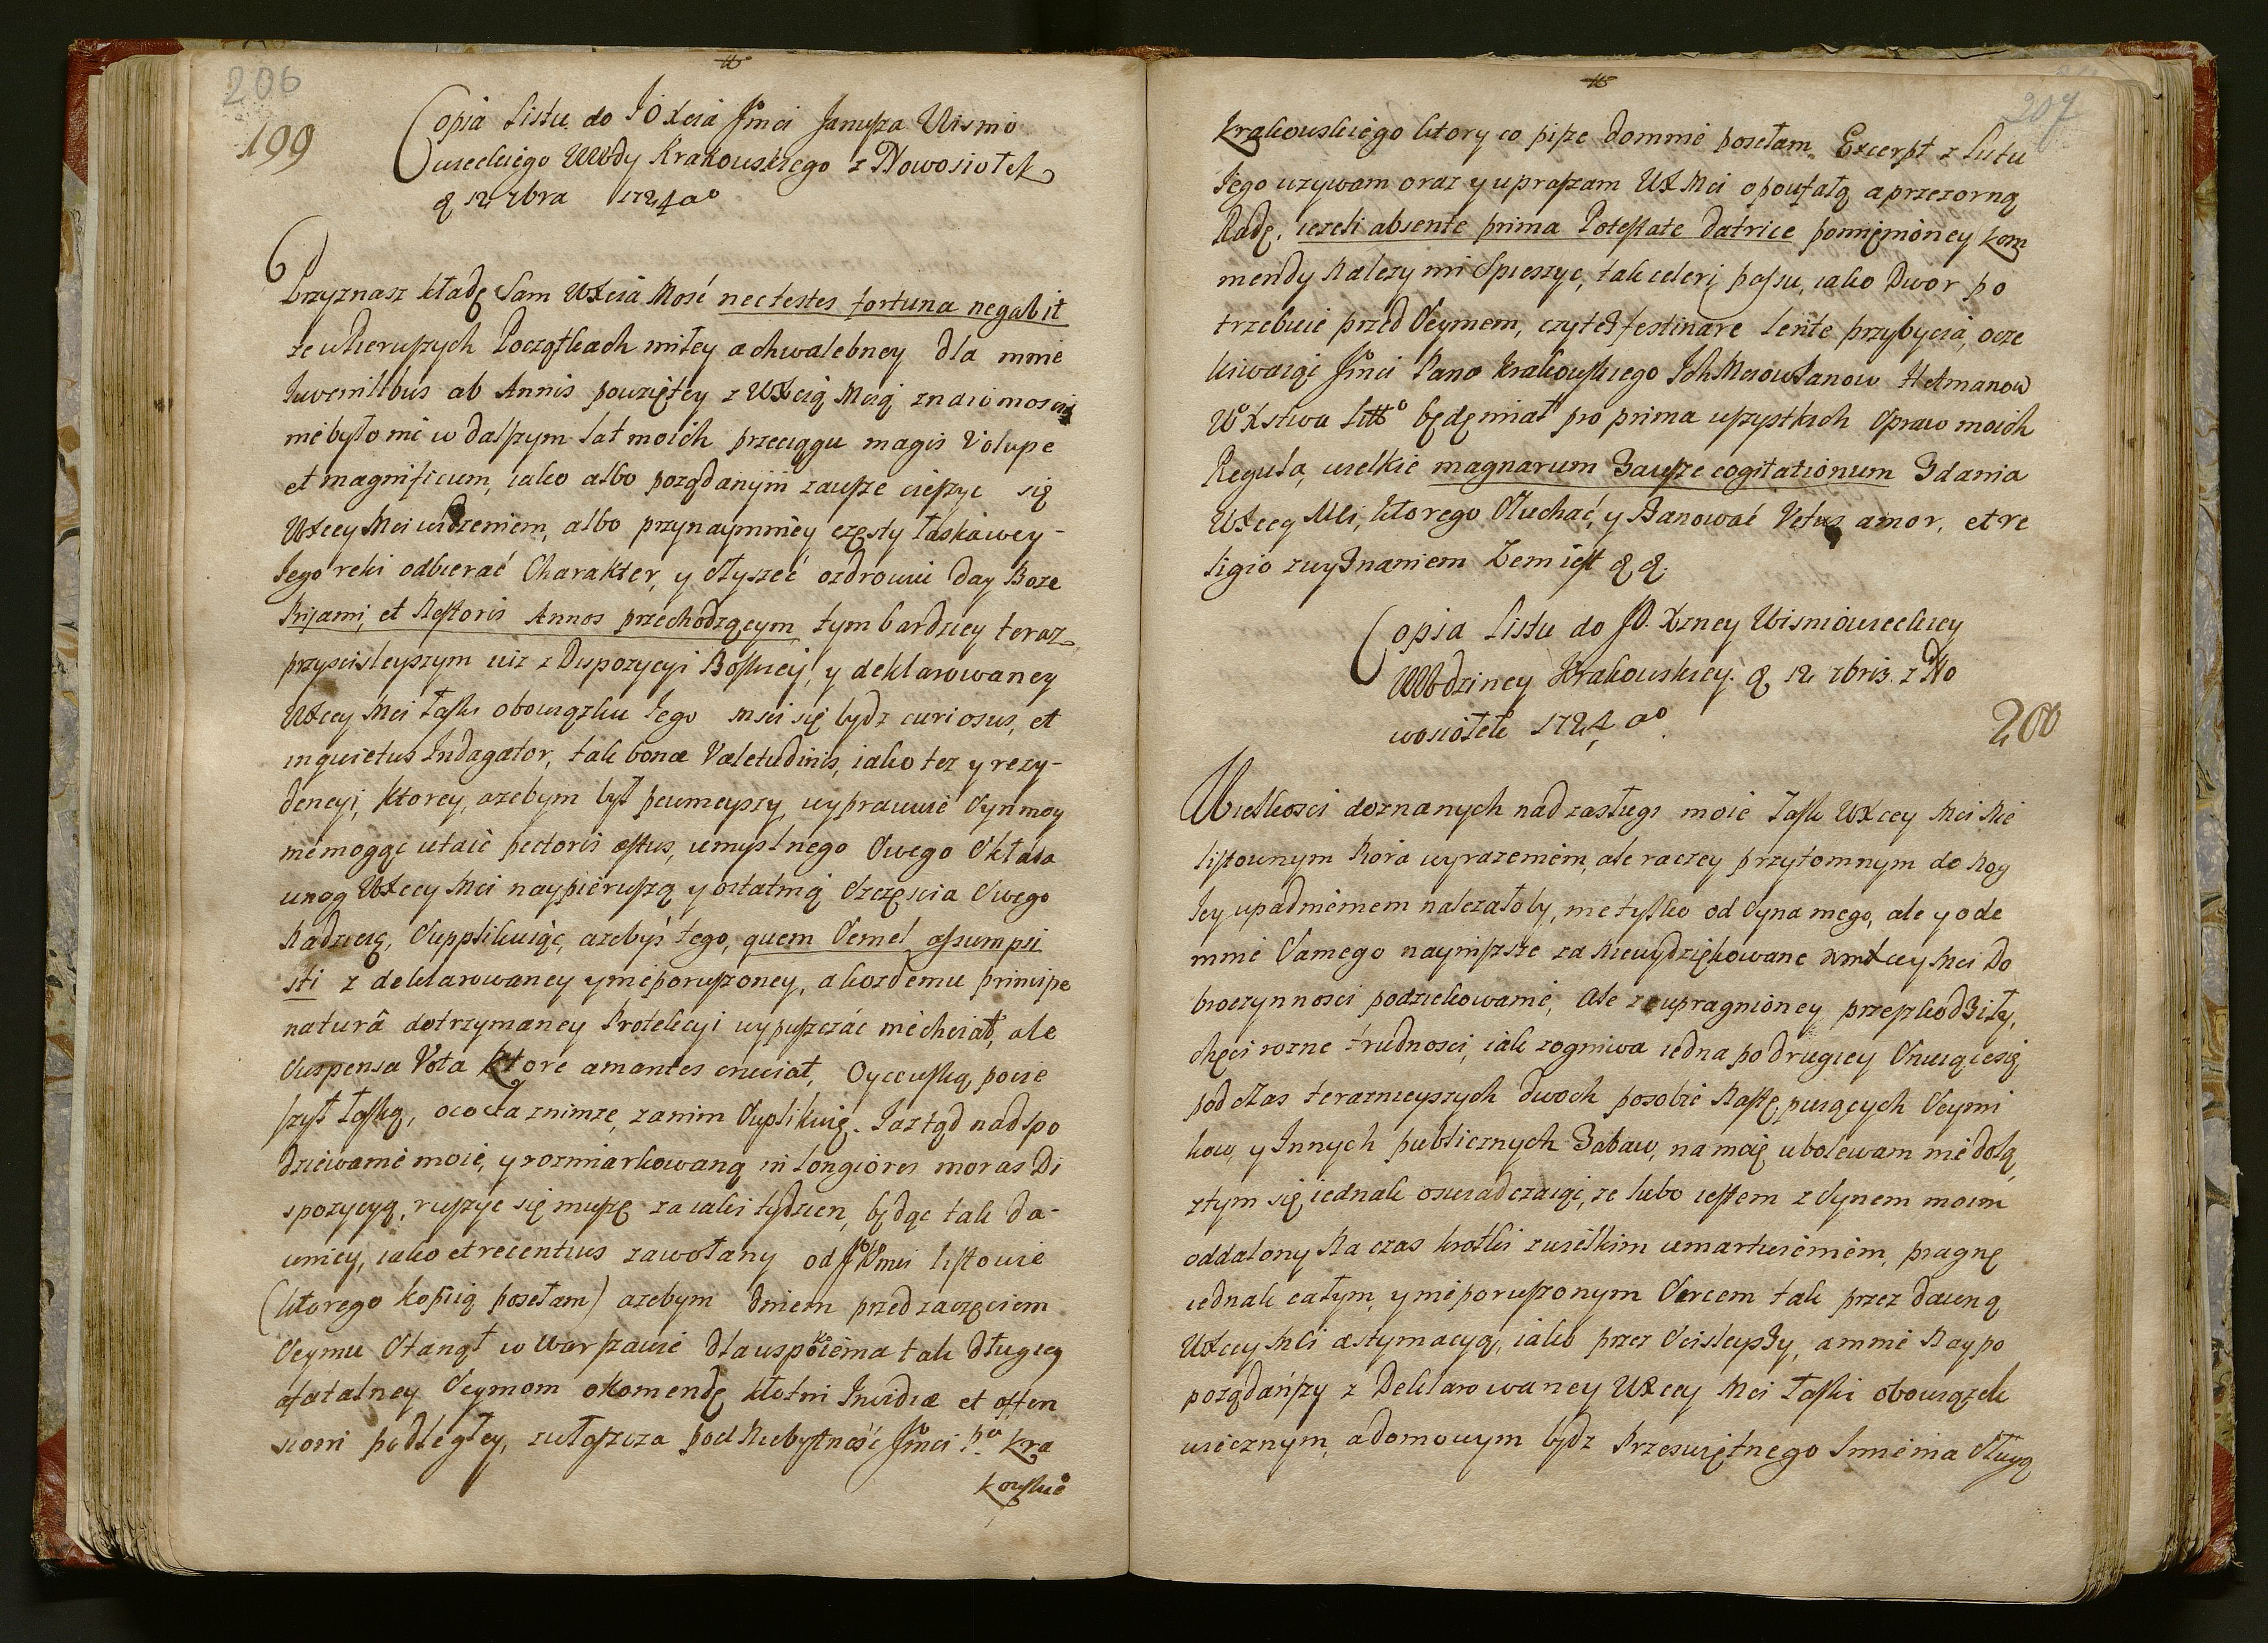 206
199
Copia Listu do JO Xcia Jmci Janusza Wismo
wieckiego WWdy Krakowskiego z Nowosiołek
12 7bra 1724 ao
Przyznasz kładę Sam WXcia Mość nec testes fortuna negabit
ze w Pierwszych Początkach miłey a chwalebney dla mnie
Iuvenilibus ab Annis powziętey z WXcią Mcią znaiomosci
nie było mi w dalszym lat moich przeciągu magis Volupe
et magnificum, iako albo poządanym zawsze cieszyc się
WXcey Mci widzeniem, albo przynaymniey częsty łaskawey
Jego reki odbierać Charakter, y słyszeć ozdrowiu day Boze
Prijami, et Nestoris Annos przechodzącym, tym bardziey teraz
przyscisleyszym iuz z Dispozycyi Boskiey, y deklarowaney
WXcey Mci Łaski obowiązku Jego msci się bydz curiosus, et
inquietus Indagator, tak bonæ Valetudinis, iako tez y rezy-
dencyi, ktorey, azebym był pewnieyszy, wyprawuie Syn moy
niemogąc utaic pectoris æstus, umyslnego Swego Oktawa
unog WXcey Mci naypierwszą y ostatnią Szczęscia Swego
Nadzieię, Supplikuiąc, azebys tego, quem Semel assumpsi
sti z deklarowaney y nieporuszoney, a kozdemu principe
naturâ dotrzymaney Protekcyi wypuszczać niechciał, ale
Suspensa Vota ktore amantes cruciat, Oycowską pocie
szył Łaską, oco Ja znimze, zanim Suplikuię. Jaztąd nadspo
dziewanie moie, y rozmiarkowaną in longiores moras Di
spozycyą, ruszyc się muszę za iaki tydzien, będąc tak da-
wniey, iako et recentius zawołany od JKmci listowie
(ktorego kopiią posełam) azebym dniem przed zaczęciem
Seymu Stanął w Warszawie dla uspokoiema tak długiey
afatalney Seymom okomendę kłotni Invidiæ et offen
sioni podległey, zwłaszcza pod Niebytność Jmci Pa Kra
kowskie
207
Krakowskiego ktory co pisze dommie posełam. Excerpt z Listu
Jego uzywam oraz y upraszam WX Mci o poufałą a przezorną
Radę, iezeli absente prima Potestate Datrice pomięnioney kom
mendy Nalezy mi Spieszyc, tak celeri passu, iako Dwor po
trzebuie przed Seymem, czy też festinare lente przybycia, ocze
kiwaiąc Jmci Pana Krakowskiego Ich Mciow Panow Hetmanow
WXstwa Litt⁰ będę miał pro prima wszystkich Spraw moich
Reguła, wielkie magnarum Zawsze cogitationum Zdania
WXcey Mci, ktorego Słuchać, y Szanować Vetus amor, et re
ligio zwyznaniem Zem iest
Copia Listu do JO. Xzney Wismowieckiey
WWdziney Krakowskiey. 12 7bris. z No
wosiołek 1724 ao.
200
Wielkosci doznanych nad zasługi moie Łask WXcey Mci Nie
listownym Piora wyrazemem, ale raczey przytomnym do Nog
Jey upadmemem nalezałoby, nie tylko od Syna mego, ale y ode
mnie Samego nayniszsze za Niewydziękowane WXcey Mci Do
broczynnosci podziekowanie, Ale ze upragnioney przeszkodziły,
chęci rozne trudnosci, iak zogniwa iedna po drugiey Snuiącesię
podczas teraznieyszych dwoch posobie Następuiących Seymi
kow, y Innych publicznych Zabaw, na moię ubolewam niedolą,
ztym się iednak oswiadczaiąc, ze lubo iestem z Synem moim
oddalony Na czas krotki zwielkim umartwieniem, pragnę
iednak całym, y nieporuszonym Sercem tak przez dawną
WXcey Mci æstymacyą, iako przez Scisleyszy, a mnie Naypo
pożądańszy z Deklarowaney WXcey Mci Łaski obowiązek
wiecznym, a domowym bydz Przeswiętnego Imienia Sługą